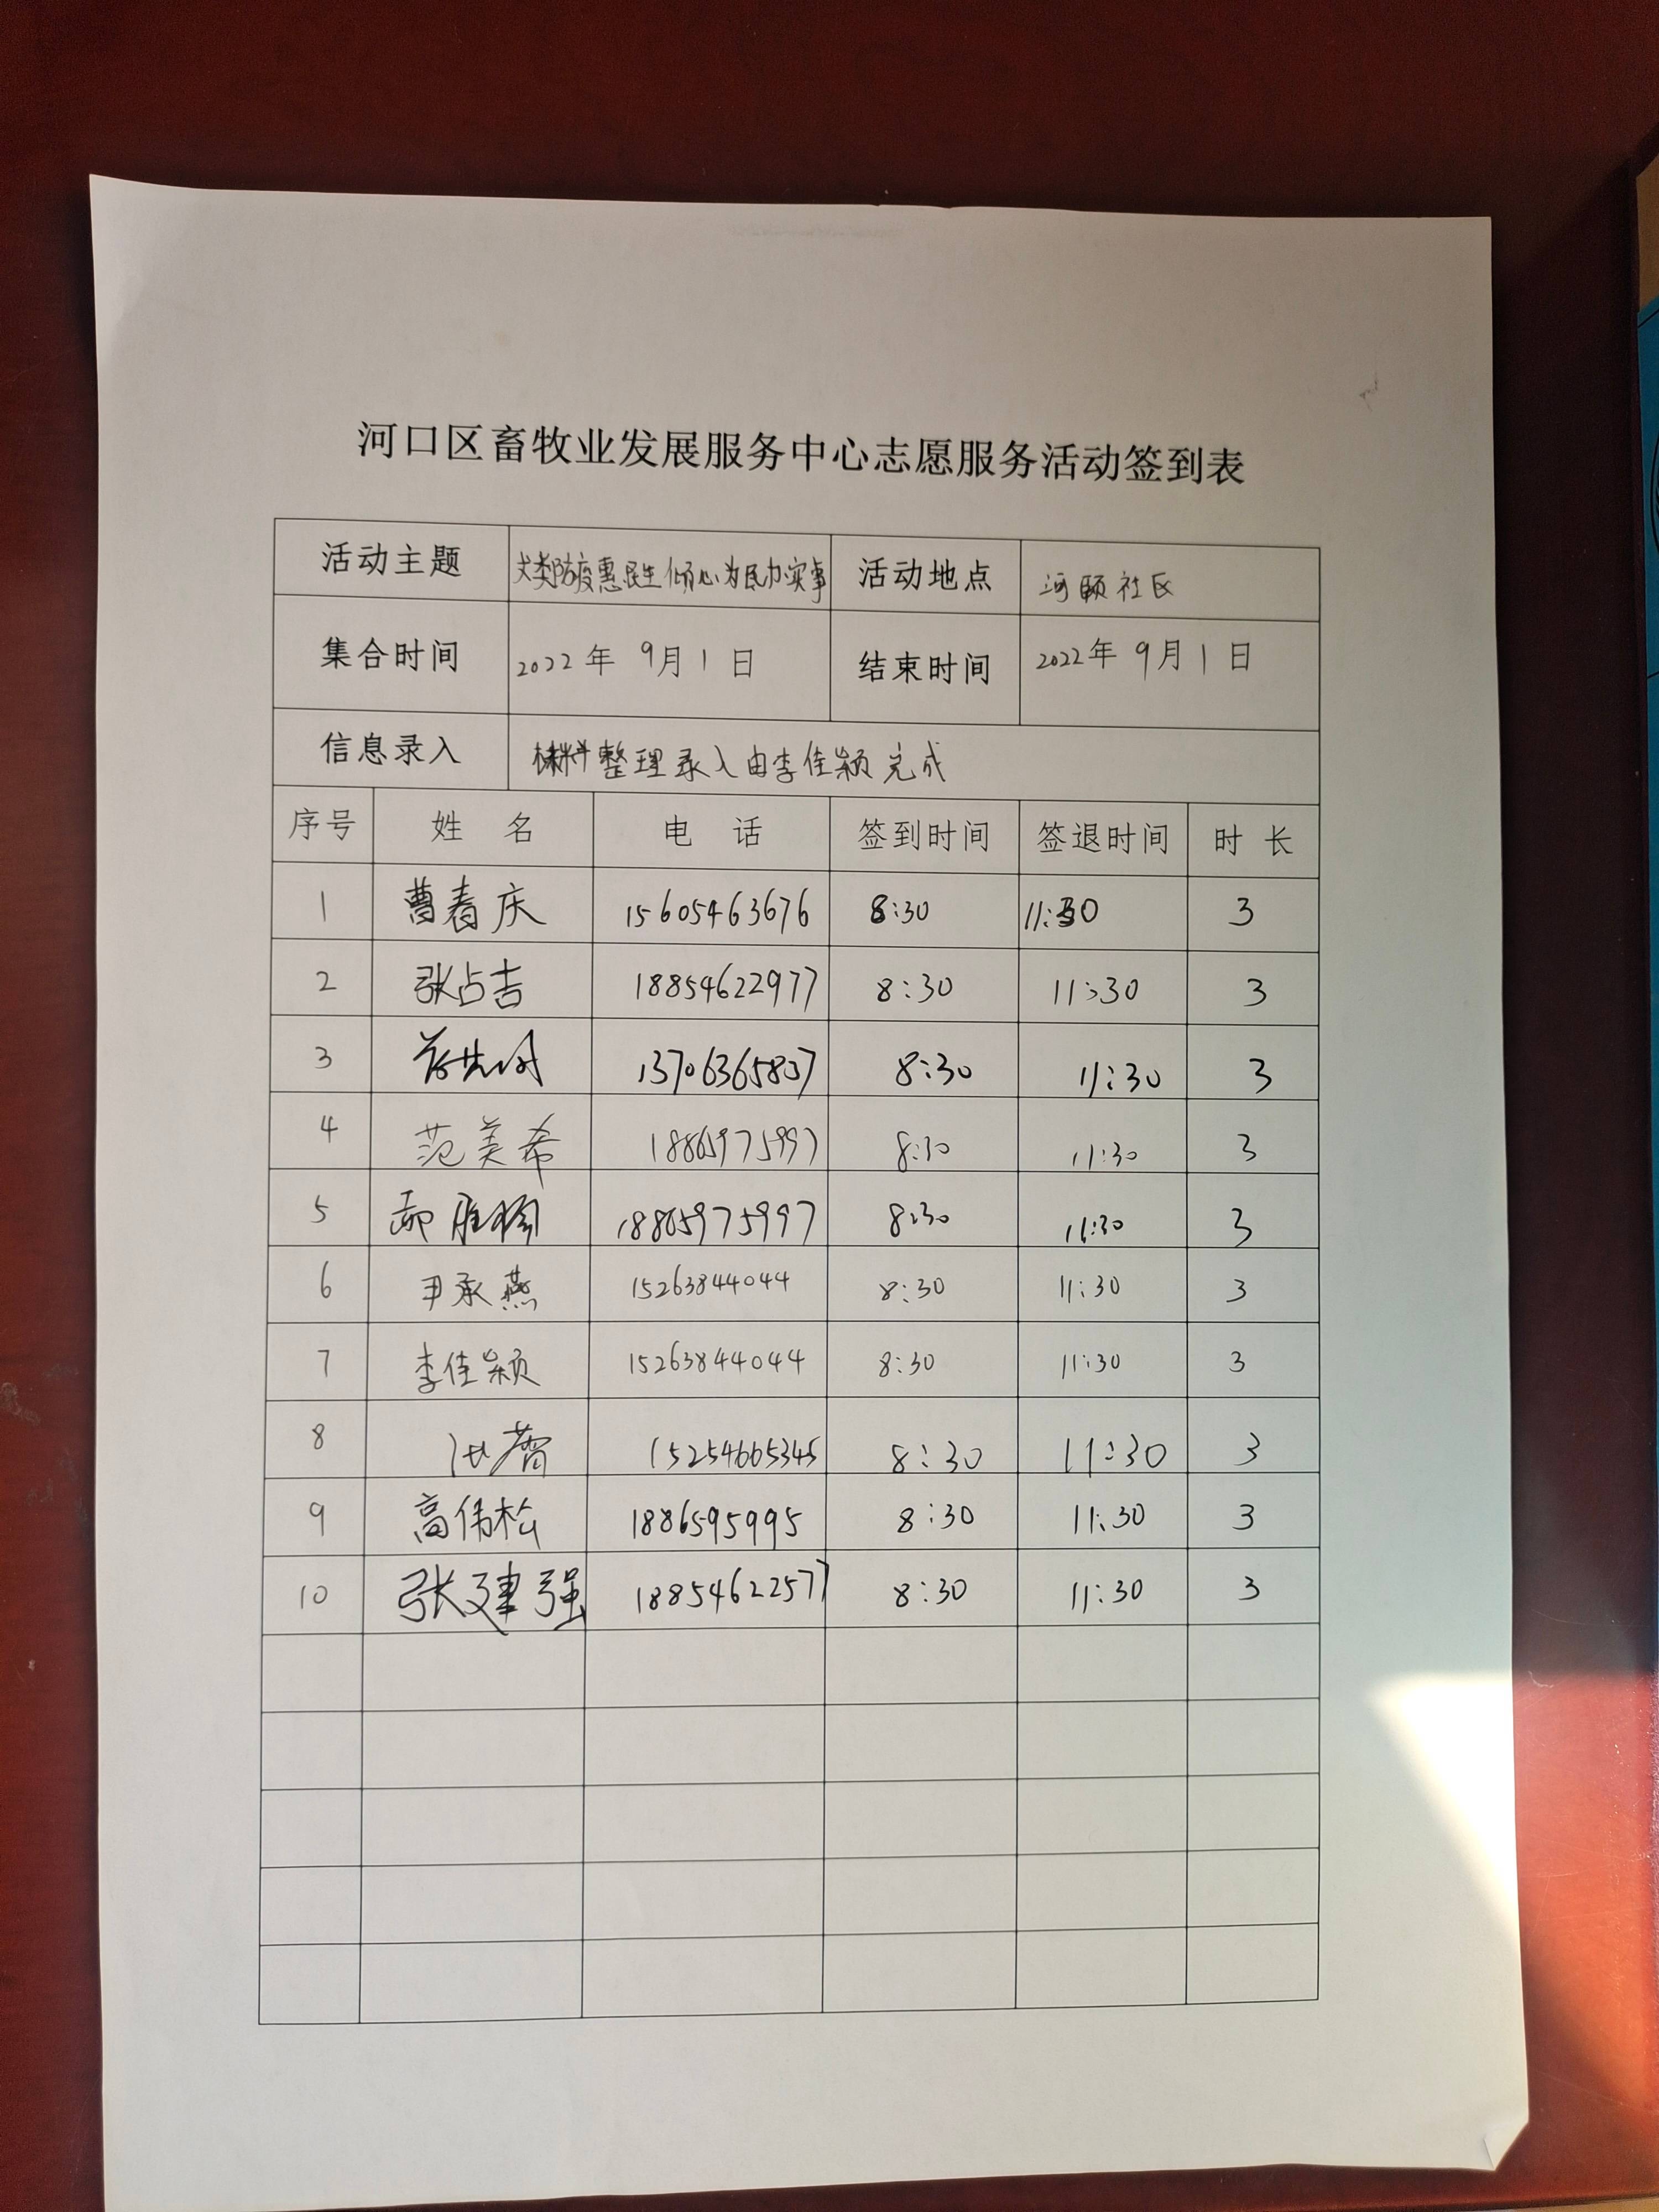 河口区畜牧业发展服务中心志愿服务活动签到表
活动主题 犬类防疫惠民生 倾心为民办实事 活动地点 河颐社区
集合时间 2022年 9月1日 结束时间 2022年 9月1日
信息录入 材料整理录入由李佳颖完成
序号 姓 名 电 话 签到时间 签退时间 时 长
1 曹春庆 15605463676 8:30 11:30 3
2 张占吉 18854622977 8:30 11:30 3
3 13706365807 8:30 11:30 3
4 范美希 18865975997 8:30 11:30 3
5 18865975997 8:30 11:30 3
6 尹承燕 15263844044 8:30 11:30 3
7 李佳颖 15263844044 8:30 11:30 3
8 15254665345 8:30 11:30 3
9 高伟松 1886595995 8:30 11:30 3
10 张建强 18854622577 8:30 11:30 3